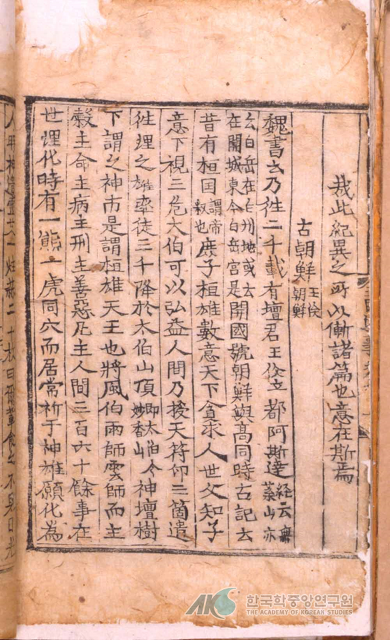 哉此紀異之所以慚諸篇也意在斯焉
古朝鮮王儉朝鮮
魏書云乃徃二千載有壇君王儉立都阿斯達經云無葉山亦
云白岳在白州地或云在開城東今白岳宮是開國號朝鮮與高同時古記云
昔有桓国謂帝釋也庶子桓雄數意天下貪求人世父知子
意下視三危太伯可以弘益人間乃授天符印三箇遣
徃理之雄率徒三千降於太伯山頂即太伯今妙香山神壇樹
下謂之神市是謂桓雄天王也將風伯雨師雲師而主
穀主命主病主刑主善惡凡主人間三百六十餘事在
世理化時有一熊一虎同穴而居常祈于神雄願化為
AKS 한국학중앙연구원
THE ACADEMY OF KOREAN STUDIES